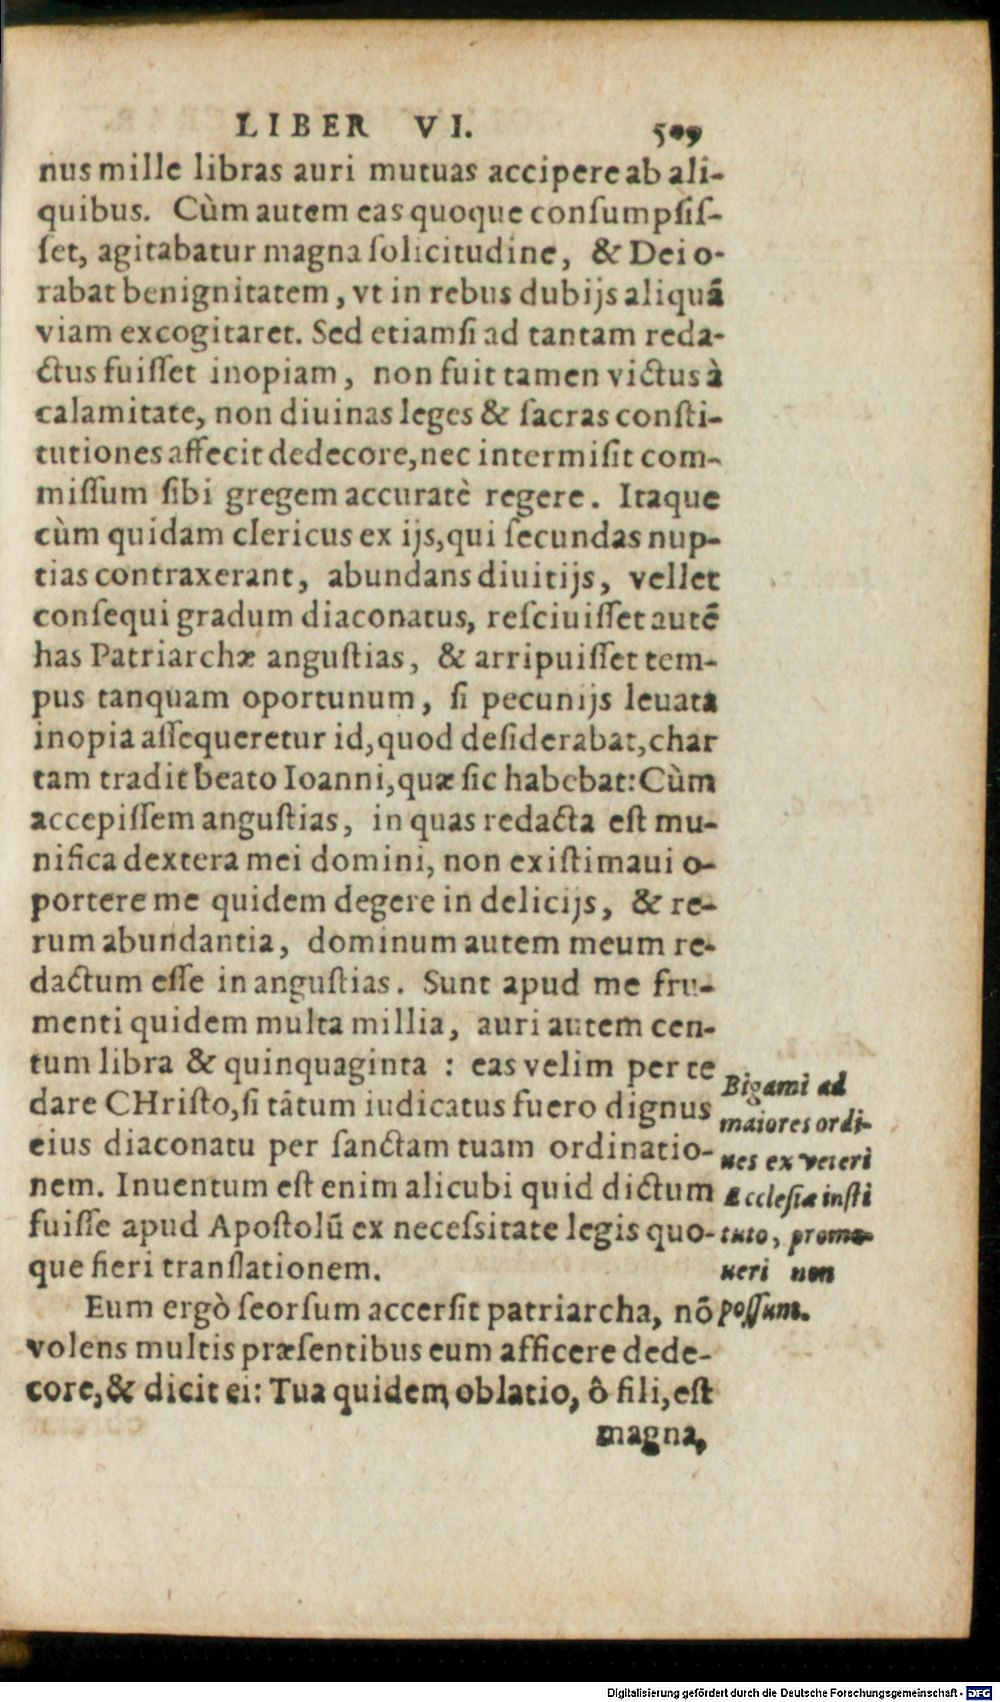 LIBER VI. 509
nus mille libras auri mutuas accipere ab ali-
quibus. Cùm autem eas quoque conſumpſiſ-
ſet, agitabatur magna ſolicitudine, & Dei o-
rabat benignitatem, vt in rebus dubijs aliquā
viam excogitaret. Sed etiamſi ad tantam reda-
ctus fuiſſet inopiam, non fuit tamen victus à
calamitate, non diuinas leges & ſacras conſti-
tutiones affecit dedecore, nec intermiſit com-
miſſum ſibi gregem accuratè regere. Itaque
cùm quidam clericus ex ijs, qui ſecundas nup-
tias contraxerant, abundans diuitijs, vellet
conſequi gradum diaconatus, reſciuiſſet autē
has Patriarchæ anguſtias, & arripuiſſet tem-
pus tanquam oportunum, ſi pecunijs leuata
inopia aſſequeretur id, quod deſiderabat, char
tam tradit beato Ioanni, quæ ſic habebat: Cùm
accepiſſem anguſtias, in quas redacta eſt mu-
nifica dextera mei domini, non exiſtimaui o-
portere me quidem degere in delicijs, & re-
rum abundantia, dominum autem meum re-
dactum eſſe in anguſtias. Sunt apud me fru-
menti quidem multa millia, auri autem cen-
tum libra & quinquaginta : eas velim per te
dare CHriſto, ſi tātum iudicatus fuero dignus
eius diaconatu per ſanctam tuam ordinatio-
nem. Inuentum eſt enim alicubi quid dictum
fuiſſe apud Apoſtolū ex neceſsitate legis quo-
que fieri tranſlationem.
Eum ergò ſeorſum accerſit patriarcha, nō
volens multis præſentibus eum afficere dede-
core, & dicit ei: Tua quidem oblatio, ô fili, eſt
magna,
Bigami ad
maiores ordi-
nes ex veteri
Eccleſiæ inſti
tuto, promo-
ueri non
poſſunt.
Digitalisierung gefördert durch die Deutsche Forschungsgemeinschaft - DFG